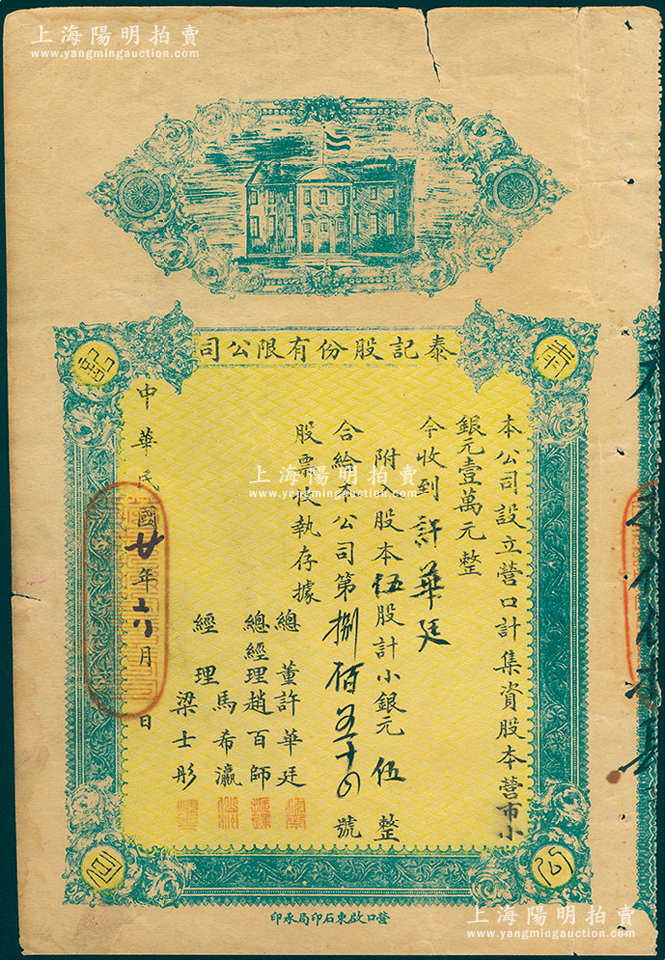 上海陽明拍賣
www.yangmingauction.com
泰記股份有限公司
本公司設立營口計集資股本營市小
銀元壹萬元整
今收到許華廷
附入股本伍股計小銀元伍整
合給本公司第捌佰五十四號
股票收執存據
總董許華廷
總經理趙百師
經理馬希瀛
梁士彤
中華民國廿年六月日
泰
記
公
司
營口啟東石印局承印
上海陽明拍賣
www.yangmingauction.com
上海陽明拍賣
www.yangmingauction.com